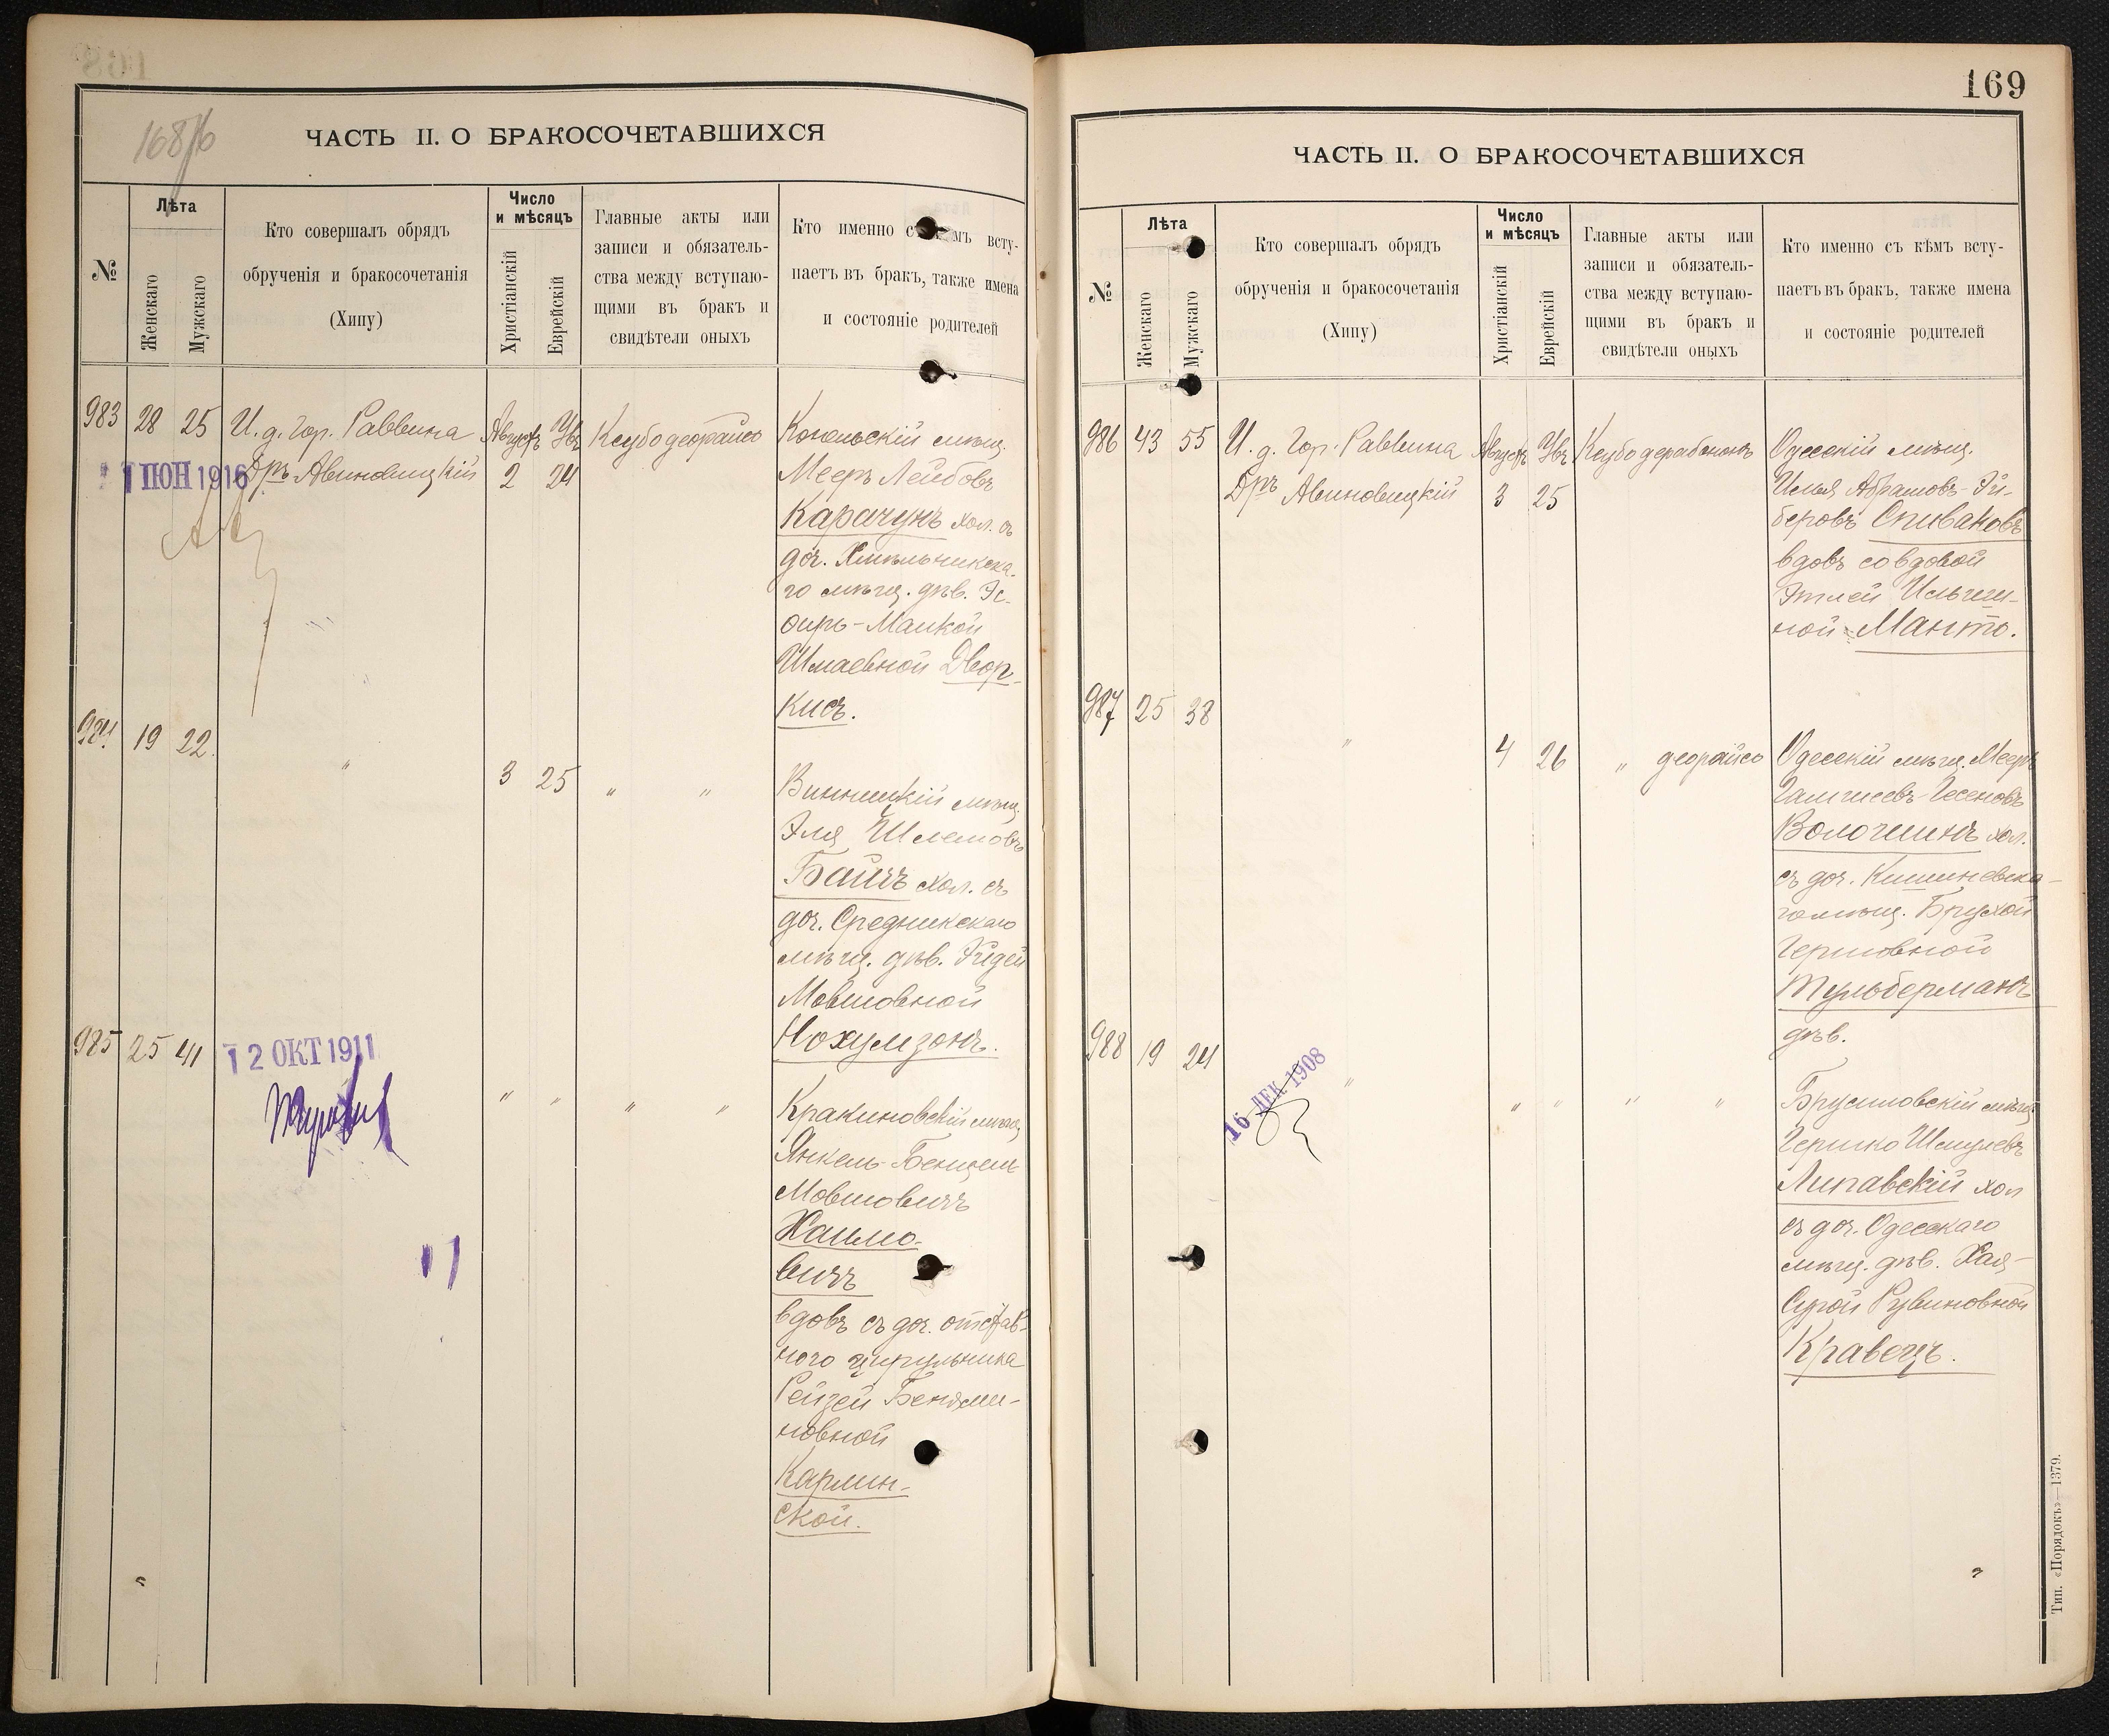 168/б
ЧАСТЬ II. О БРАКОСОЧЕТАВШИХСЯ
№
Лѣта
Женскаго
Мужскаго
Кто совершалъ обрядъ
обрученія и бракосочетанія
(Хипу)
Число
и мѣсяцъ
Христіанскій
Еврейскій
Главные акты или
записи и обязатель-
ства между вступаю-
щими въ бракъ и
свидѣтели оныхъ
Кто именно с мъ всту-
паетъ въ бракъ, также имена
и состояніе родителей
983 28 25 И. д. Гор. Раввина Августъ Ксубо деорайсо
1 ІЮН 1916
Дръ Авиновицкій 2 24
Копельскій мѣщ.
Мееръ Лейбовъ
Карачунъ хол. съ
доч. Хмѣльникска-
го мѣщ. дѣв. Эс-
фирь-Малкой
Шмаевной Двор-
кисъ.
984 19 22 "
3 25 " "
Винницкій мѣщ.
Эля Шлемовъ
Байчъ хол. съ
доч. Средникскаго
мѣщ. дѣв. Эйдей
Мовшовной
Нохумзонъ.
985 25 41
12 ОКТ 1911
" " " "
Кракиновскій мѣщ.
Янкель-Бенцель
Мовшовичъ
Хаимо-
вичъ
вдовъ съ доч. отстав-
ного цирульника
Рейзей Бенями-
новной
Карлин-
ской.
169
ЧАСТЬ II. О БРАКОСОЧЕТАВШИХСЯ
№
Лѣта
Женскаго
Мужскаго
Кто совершалъ обрядъ
обрученія и бракосочетанія
(Хипу)
Число
и мѣсяцъ
Христіанскій
Еврейскій
Главные акты или
записи и обязатель-
ства между вступаю-
щими въ бракъ и
свидѣтели оныхъ
Кто именно съ кѣмъ всту-
паетъ въ бракъ, также имена
и состояніе родителей
986 43 55 И. д. Гор. Раввина Августъ Ксубо дерабононъ
Дръ Авиновицкій 3 25
Одесскій мѣщ.
Илья Абрамовъ-Эй-
беровъ Спиваковъ
вдовъ со вдовой
Этлей Ильичи-
ной Манто.
987 25 38 "
4 26 " деорайсо
Одесскій мѣщ. Мееръ
Волочинъ хол.
съ доч. Кишиневска-
го мѣщ. Брухой
Гершовной
Тульберманъ
дѣв.
988 19 24 "
16 ДЕК 1908
" " " "
Брусиловскій мѣщ.
Гершко Шмулевъ
Липавскій хол
съ доч. Одесскаго
мѣщ. дѣв. Хая-
Сурой Рувиновной
Кравецъ.
Тип. «Порядокъ»—1379.